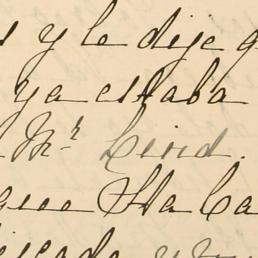 s y le dije q
ya estaba
Mr. Lind.
que Sta Ca